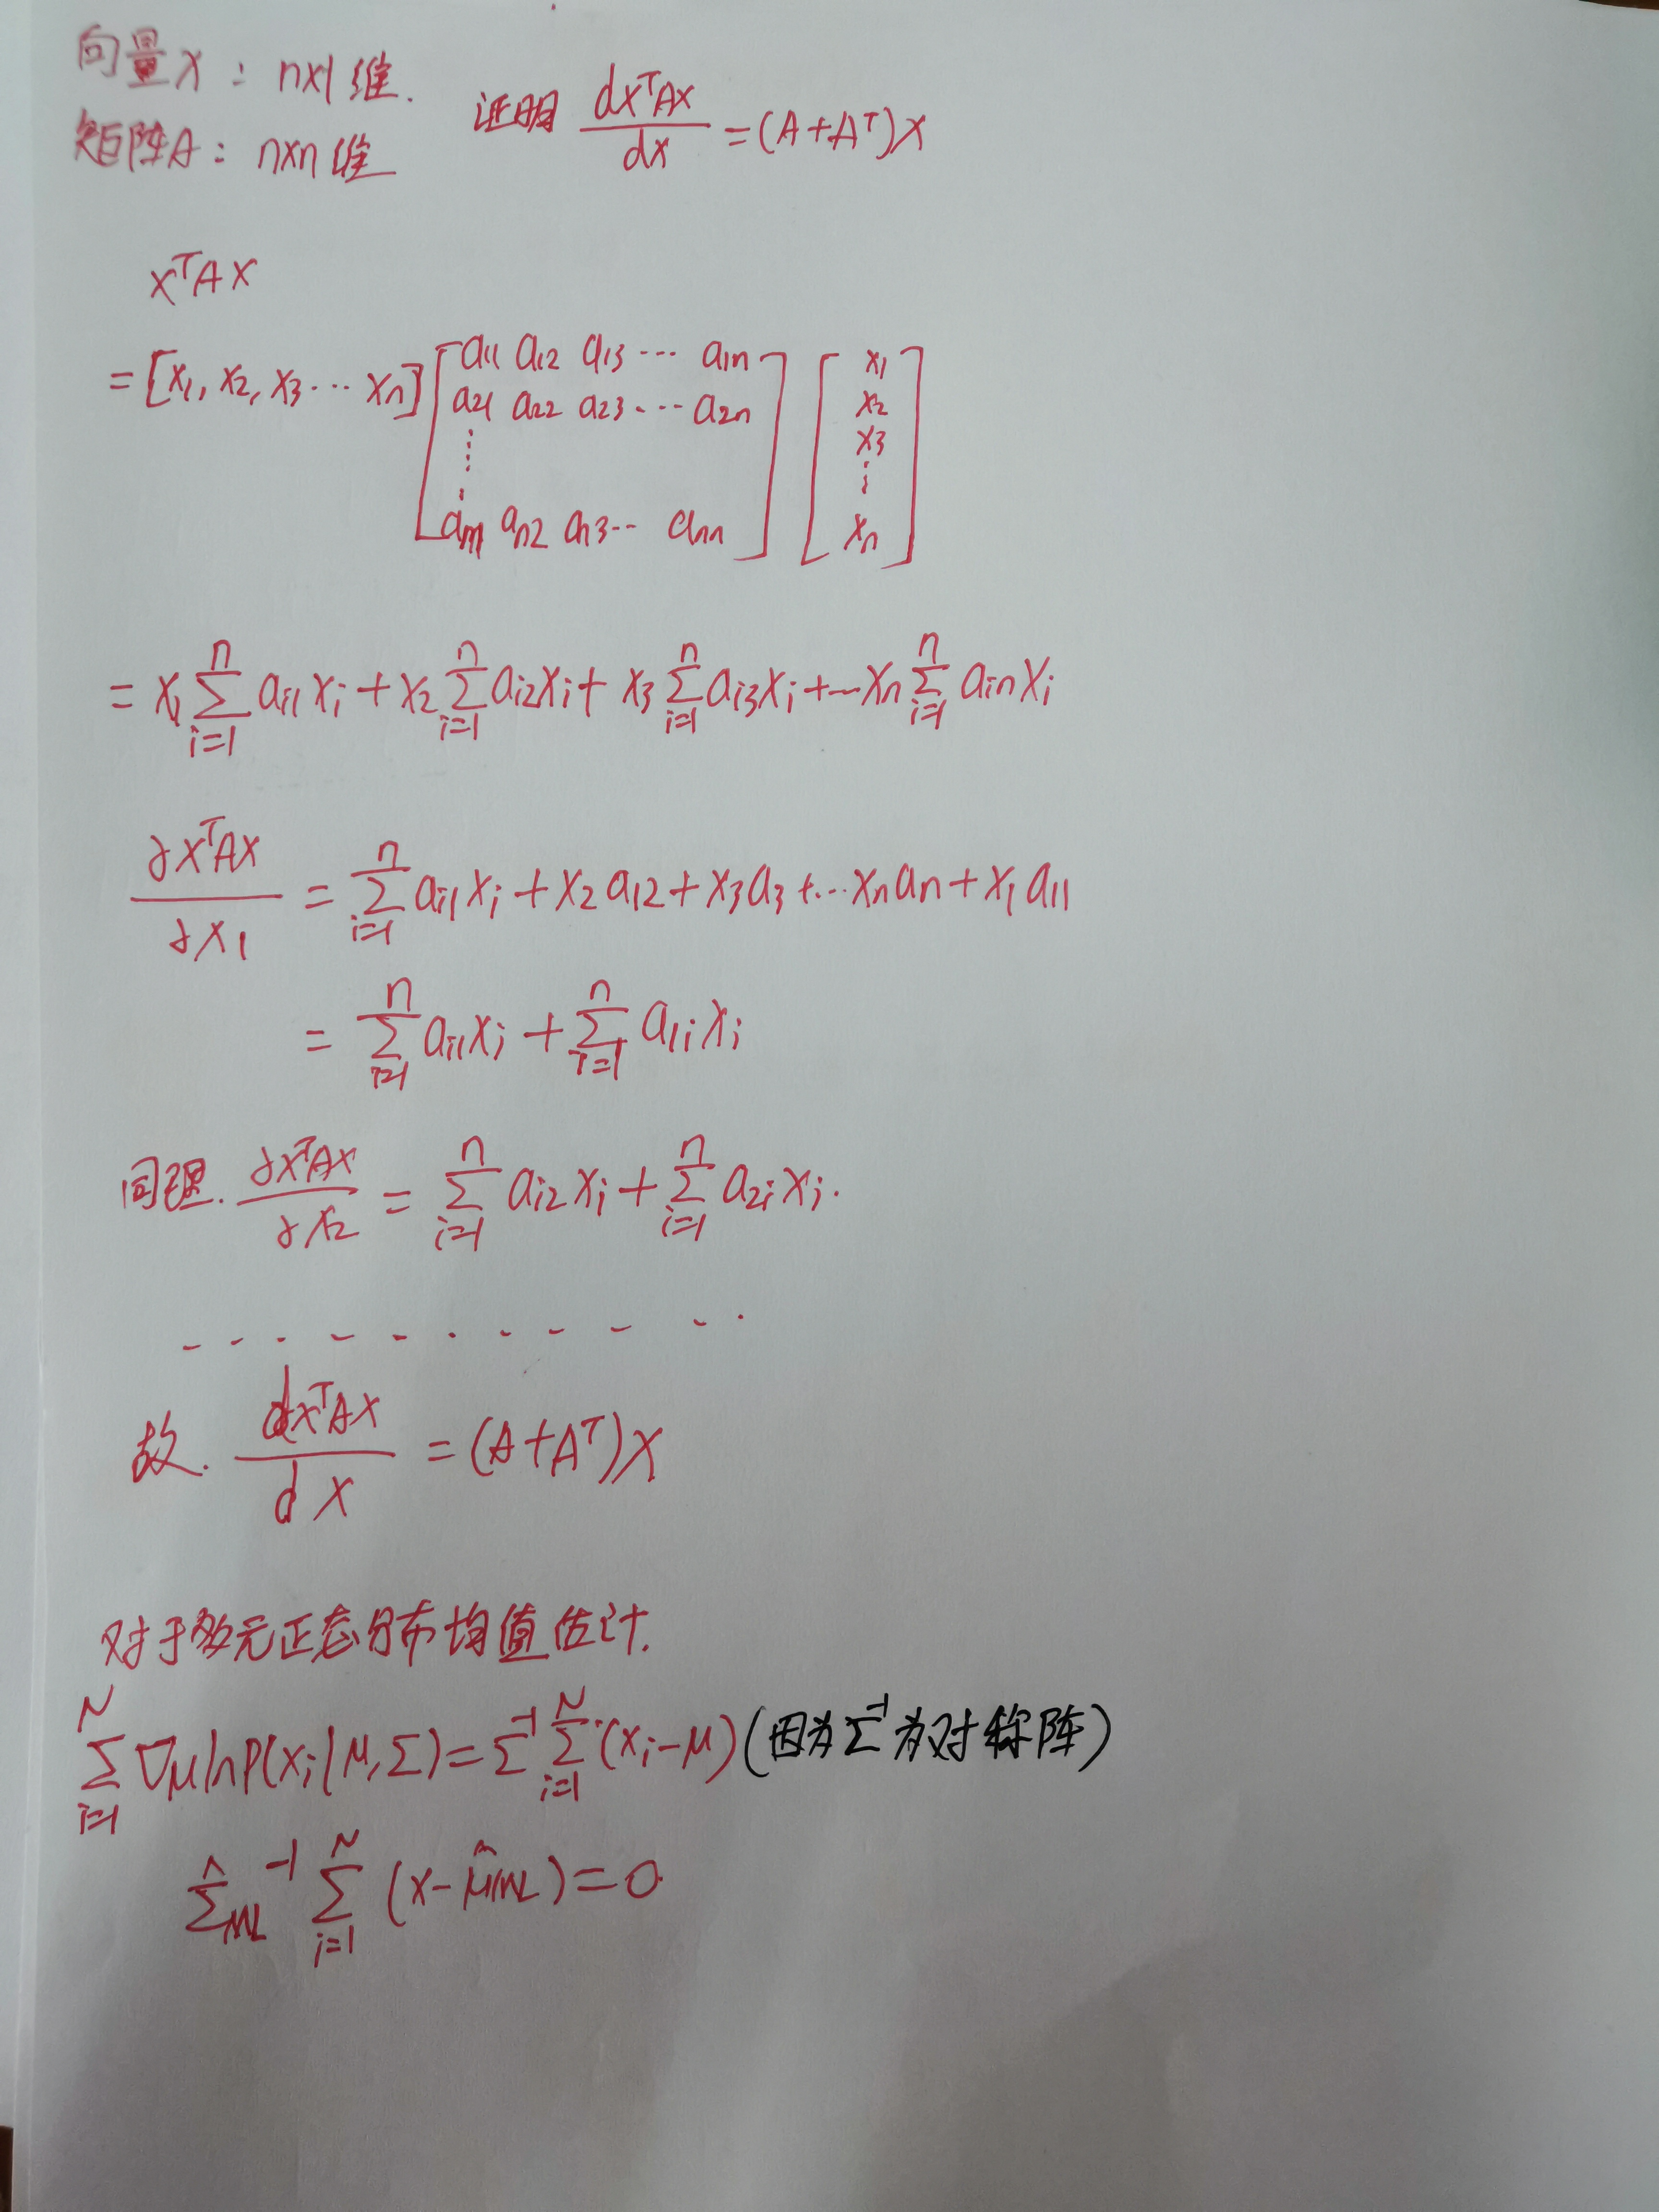 向量X：n×1维.
矩阵A：n×n维
证明 dXᵀAX/dX = (A+Aᵀ)X
XᵀAX
= [x₁, x₂, x₃ ⋯ xₙ] [a₁₁ a₁₂ a₁₃ ⋯ a₁ₙ; a₂₁ a₂₂ a₂₃ ⋯ a₂ₙ; ⋮ aₙ₁ aₙ₂ aₙ₃ ⋯ aₙₙ] [x₁ x₂ x₃ ⋮ xₙ]
= x₁ ∑_{i=1}^{n} a_{i1}x_i + x₂ ∑_{i=1}^{n} a_{i2}x_i + x₃ ∑_{i=1}^{n} a_{i3}x_i + ⋯ xₙ ∑_{i=1}^{n} a_{in}x_i
∂XᵀAX/∂x₁ = ∑_{i=1}^{n} a_{i1}x_i + x₂a₁₂ + x₃a₃ + ⋯ xₙaₙ + x₁a₁₁
= ∑_{i=1}^{n} a_{i1}x_i + ∑_{i=1}^{n} a_{1i}x_i
同理. ∂XᵀAX/∂x₂ = ∑_{i=1}^{n} a_{i2}x_i + ∑_{i=1}^{n} a_{2i}x_i.
故. dXᵀAX/dX = (A+Aᵀ)X
对于多元正态分布均值估计.
∑_{i=1}^{N} ∇μ ln P(x_i|μ,Σ) = Σ⁻¹ ∑_{i=1}^{N} (x_i−μ) (因为Σ⁻¹为对称阵)
Σ̂_{ML}⁻¹ ∑_{i=1}^{N} (x−μ̂_{ML}) = 0